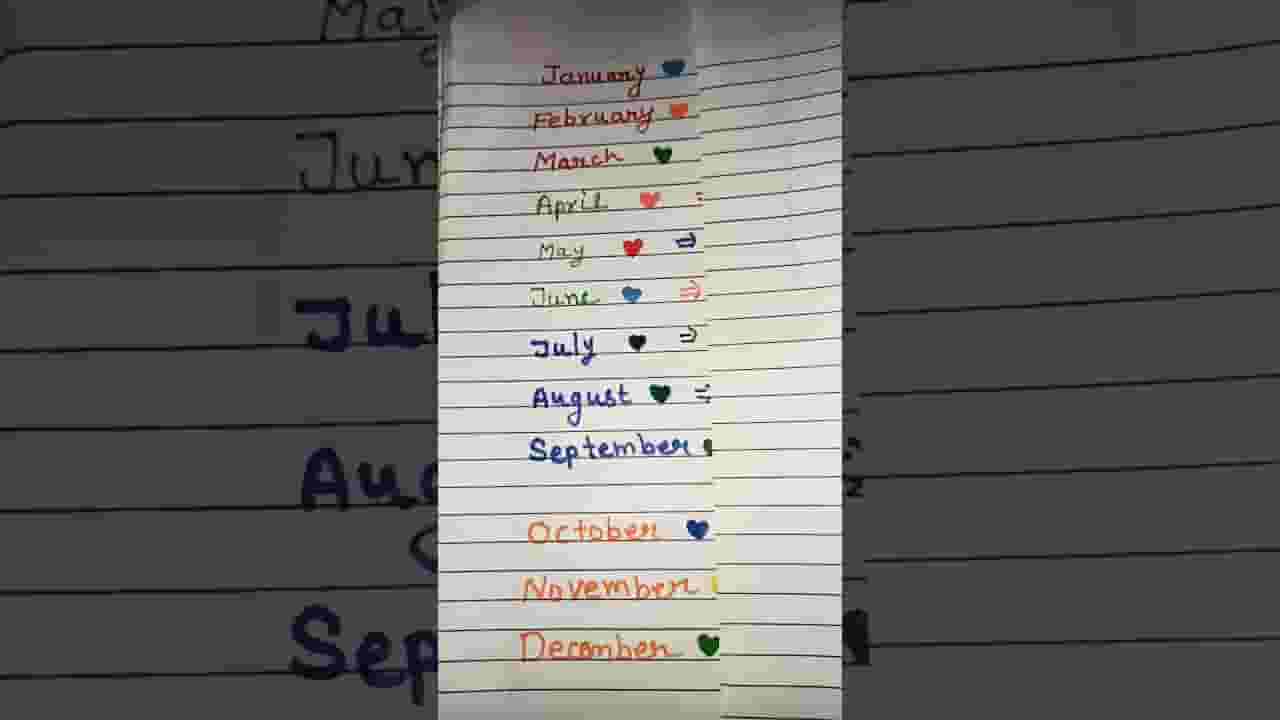 January 💙
February 🧡
March 💚
April ❤️ :
May ❤️ ⇒
June 💙 ⇒
July 🖤 ⇒
August 💚 ⇒
September
October 💙
November
December 💚
May
Jun
Jul
Aug
Sep